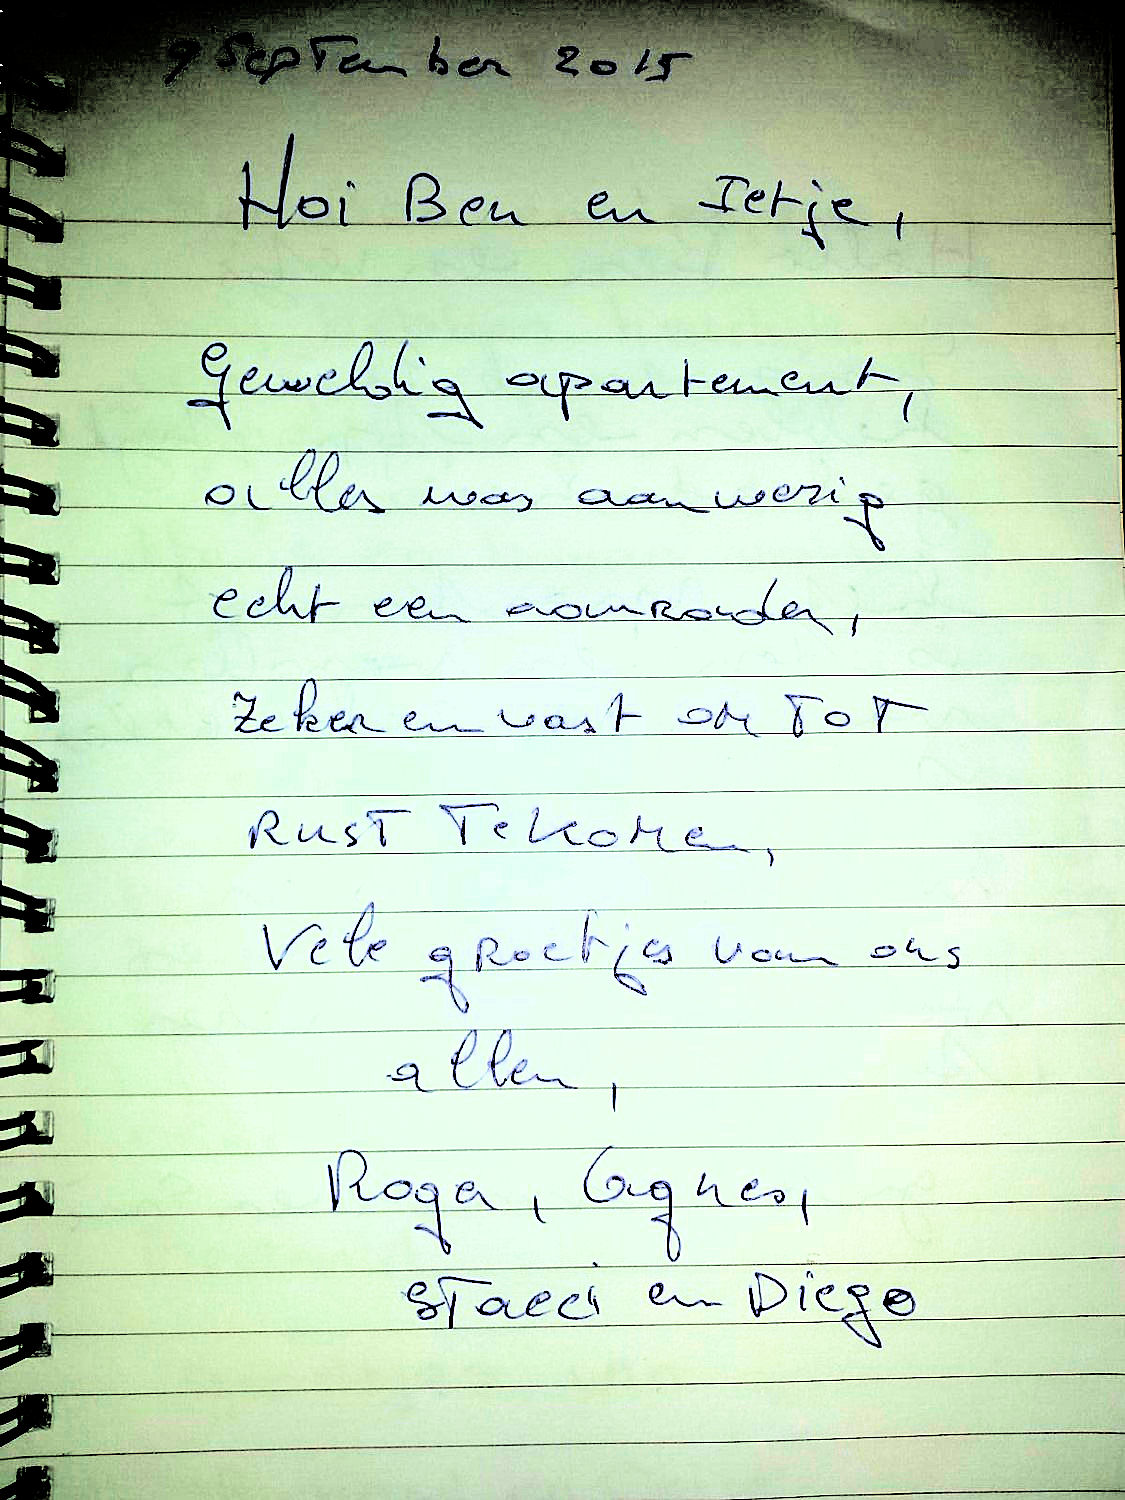 9 September 2015
Hoi Ben en Ietje,
Geweldig apartement,
alles was aanwezig
echt een aanrader,
Zeker en vast om tot
Rust te komen,
Vele groetjes van ons
allen,
Roger, Agnes,
Stacci en Diego